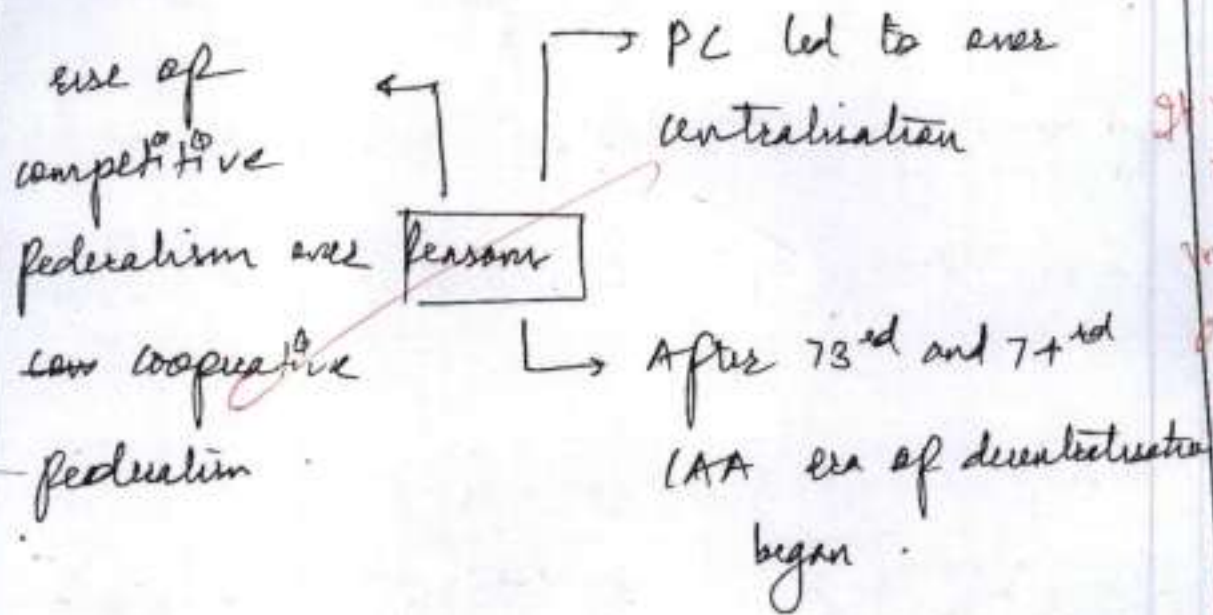 rise of
competitive
federalism over
cooperative
federalism
Reasons
PC led to over
centralisation
After 73rd and 74rd
CAA era of decentralisation
began.